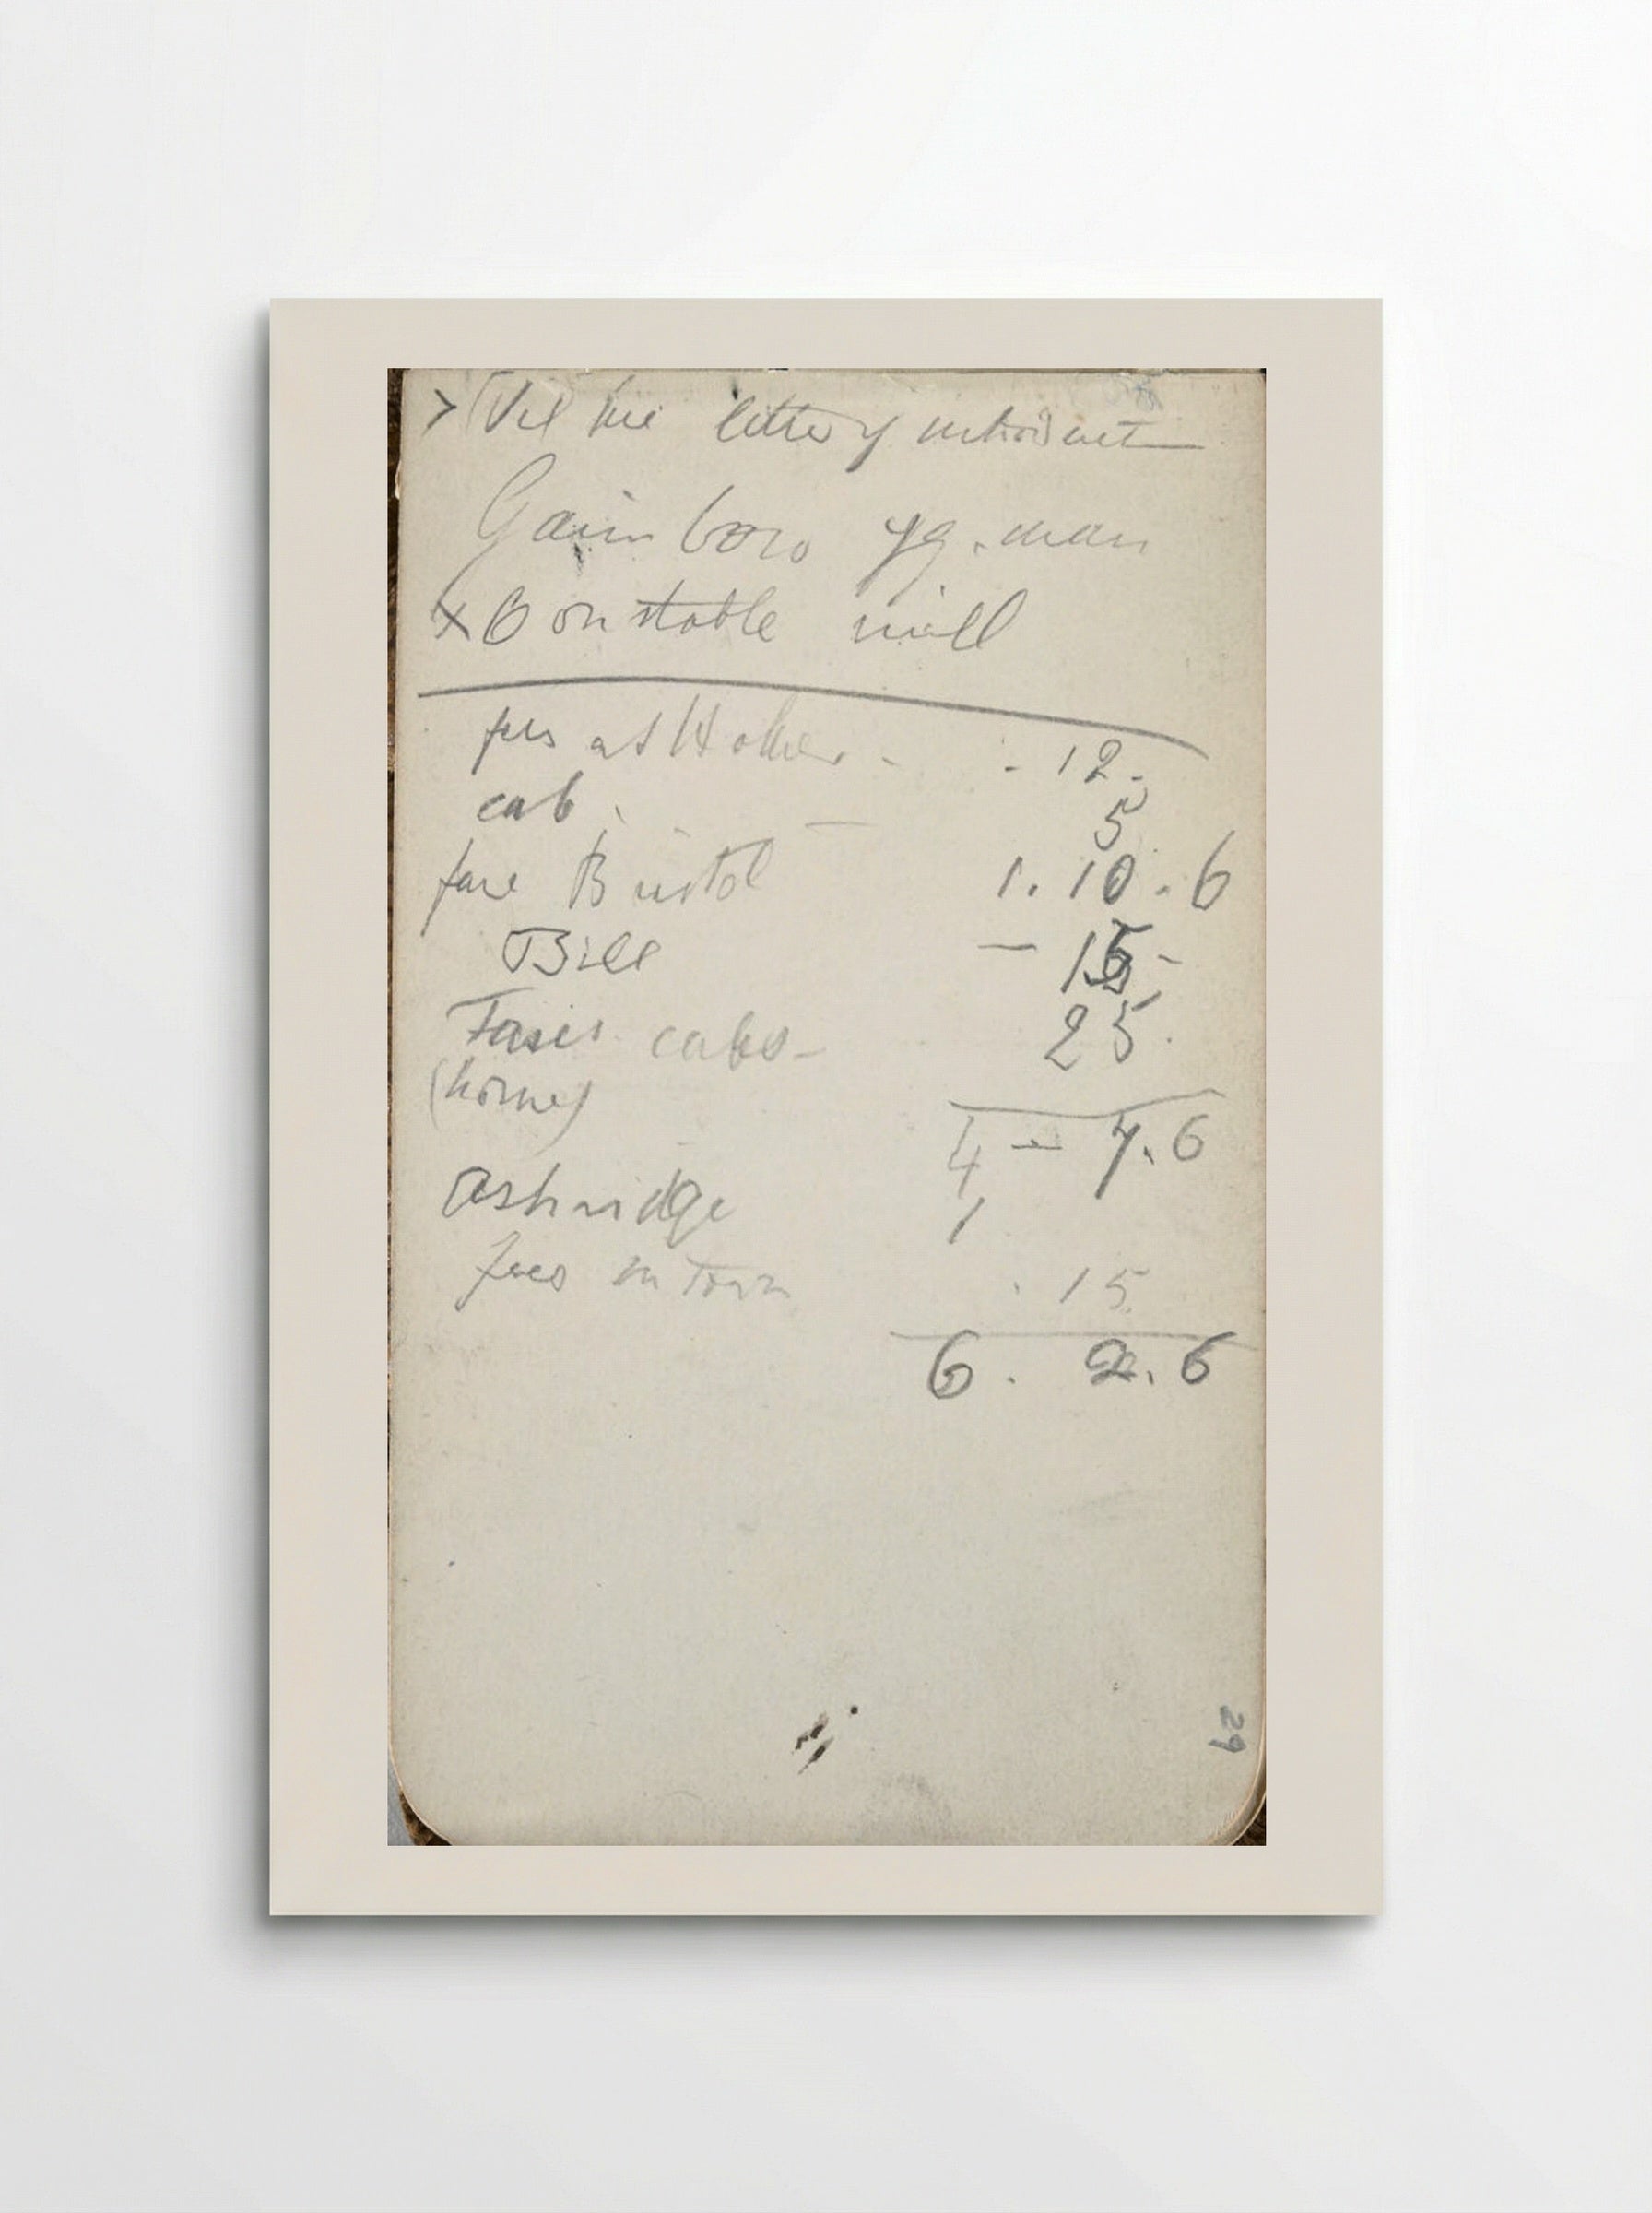 letter of introduct
Gainboro yg. man
x Constable mill
fees at Holker - - 12.
cab. — 5
fare Bristol 1. 10. 6
Bill — 15 -
Fares cabs - 25.
(home)
4 — 7. 6
Ashridge 1
fees in town . 15
6. 2. 6
29